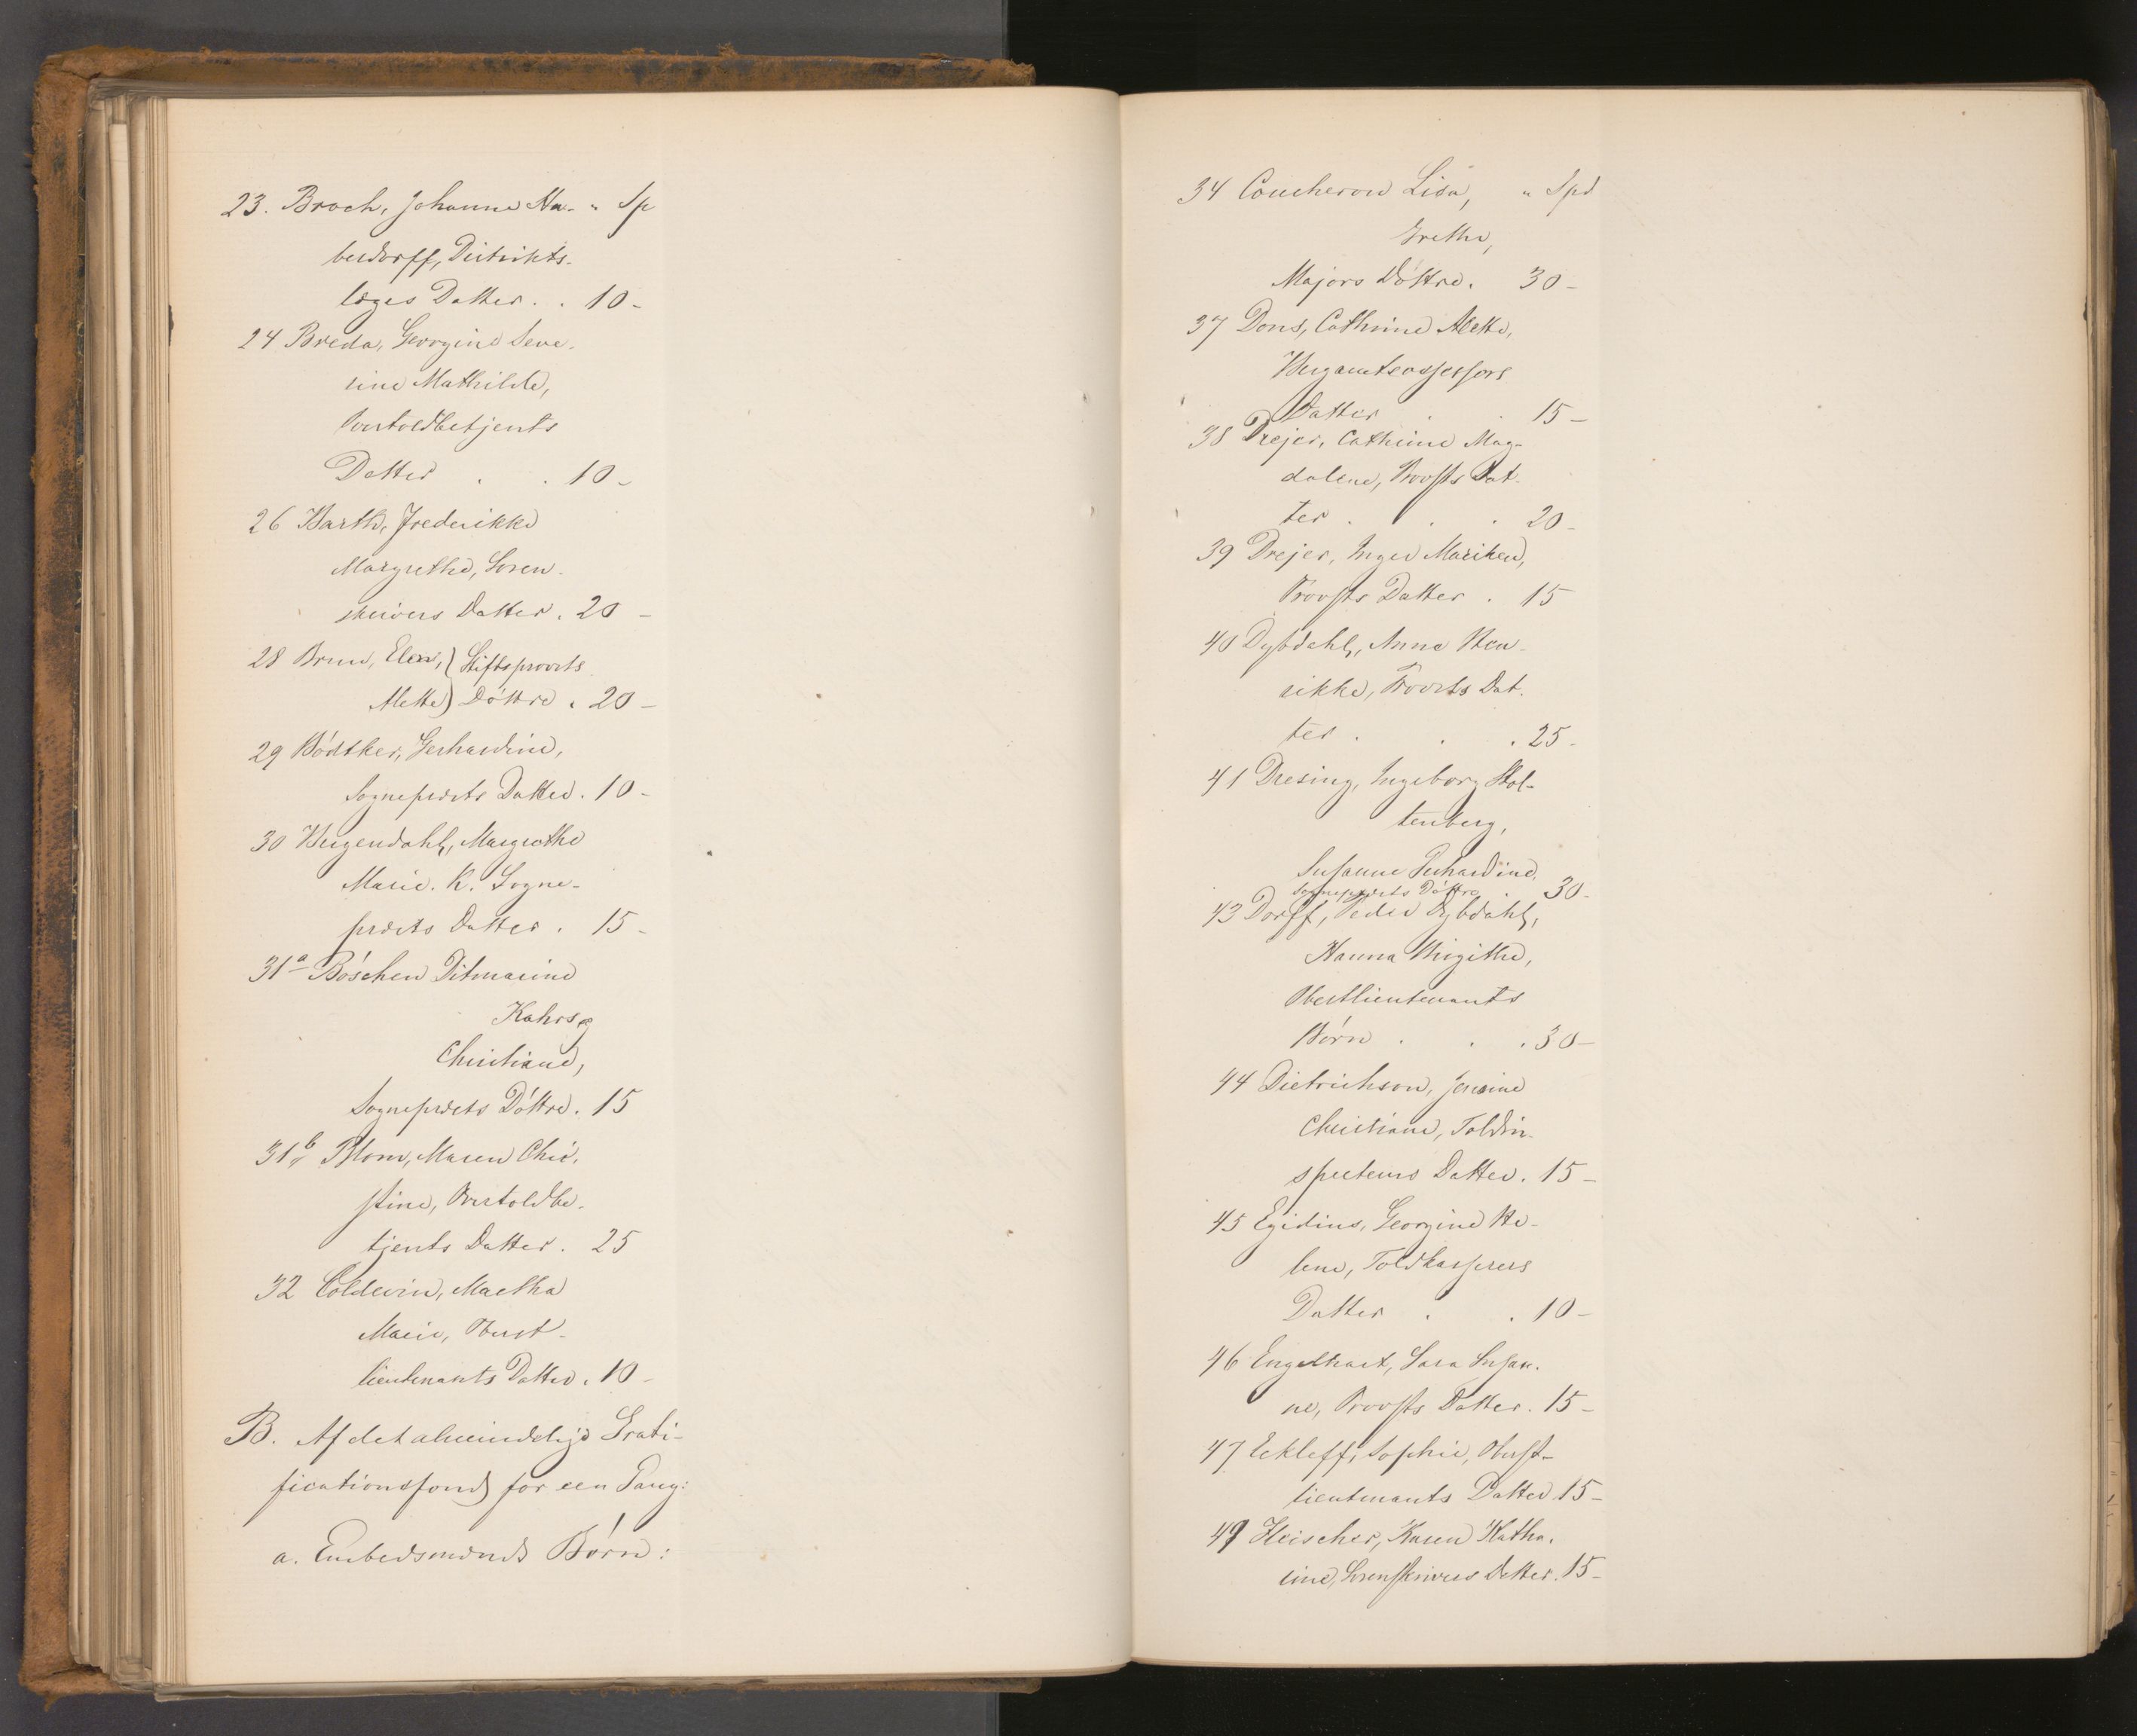 23. Broch, Johanne Ha- " Sp
berdorff, Distrikts-
læges Datter . . 10 -
24 Breda, Georgine Seve-
rine Mathilde,
Overtoldbetjents
Datter . . 10 -
26 Barth, Frederikke
Margrethe, Soren-
skrivers Datter . 20 -
28 Brun, Elen, } Stiftsprovsts
Mette } Döttre . 20 -
29 Bödtker, Gerhardine,
Sogneprests Datter . 10 -
30 Bergendahl, Margrethe
Marie. K. Sogne-
prests Datter . 15 -
31 a Böschen Ditmarine
Kahrs og
Christiane,
Sogneprests Döttre . 15
31 b Blom, Maren Chri-
stine, Overtoldbe-
tjents Datter . 25
32 Coldevin, Martha
Marie, Oberst-
lieutenants Datter . 10 -
B. Af det almindelige Grati-
ficationsfond for een Gang:
a. Embedsmænds Börn:
34 Coucheron Lisa, " Spd
Grethe,
Majors Döttre . 30 -
37 Dons, Cathrine Mette,
Bergamtsassessors
Datter . . 15 -
38 Drejer, Cathrine Mag-
dalene, Provsts Dat-
ter . . . 20 -
39 Drejer, Inger Mariken,
Provsts Datter . 15
40 Dybdahl, Anne Hen-
rikke, Provsts Dat-
ter . . . 25 -
41 Dresing, Ingeborg Stol-
tenberg,
Susanne Gerhardine,
Sogneprests Döttre . 30 -
43 Dorff, Peder Dybdahl,
Hanna Birgitte,
Oberstlieutenants
Börn . . . 30 -
44 Dietrichson, Jensine
Christiane, Toldin-
specteurs Datter . 15 -
45 Egidius, Georgine He-
lene, Toldkasserers
Datter . . 10 -
46 Engelhart, Sara Susan-
ne, Provsts Datter . 15 -
47 Eckleff, Sophie, Oberst-
lieutenants Datter 15 -
49 Fleischer, Karen Katha-
rine, Sorenskrivers Datter . 15 -